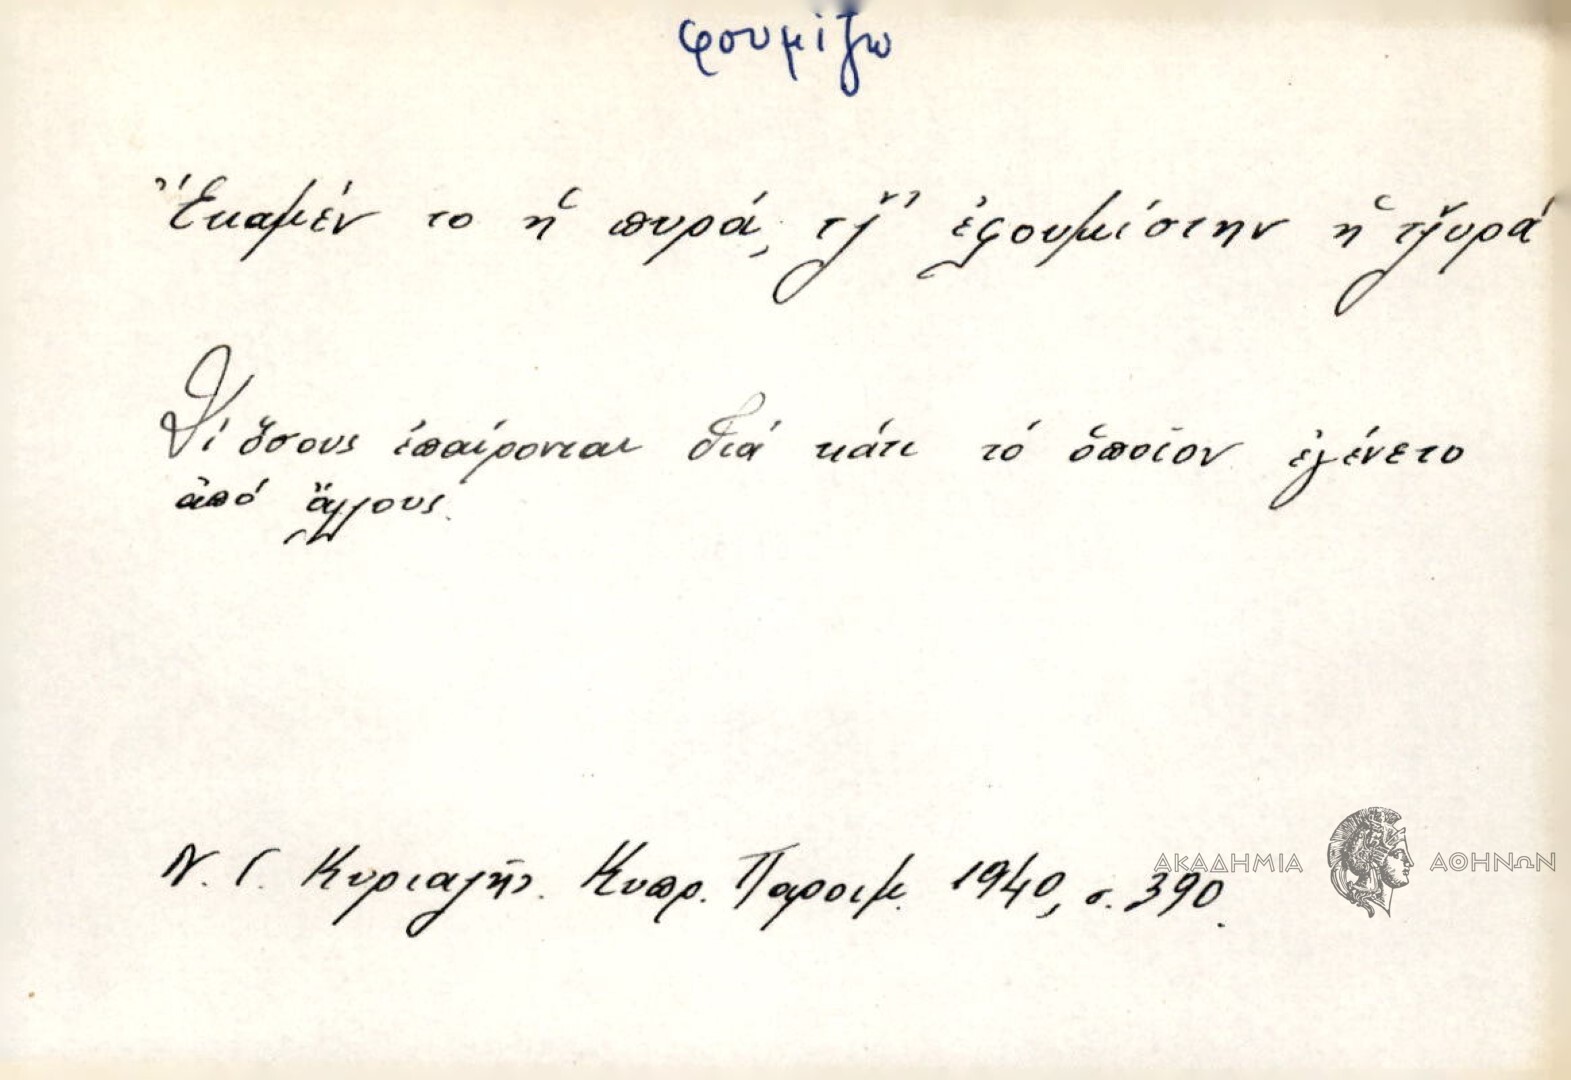 φουμίζω
Ἔκαμέν το ἡ πυρά, τζ̌' ἐφουμίστην ἡ τζ̌υρά
Δι' ὅσους ἐπαίρονται διά κάτι τό ὁποῖον ἐγένετο
ἀπό ἄλλους.
Ν. Γ. Κυριαζῆς. Κυπρ. Παροιμ. 1940, σ. 390.
ΑΚΑΔΗΜΙΑ ΑΘΗΝΩΝ